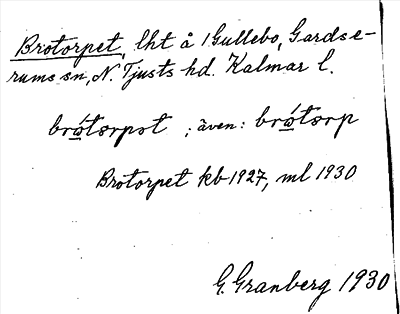 Brotorpet, lht å 1Gullebo, Gardse-
rums sn, N. Tjusts hd. Kalmar l.
brώtɷrpɷt ; även: brώtɷrp
Brotorpet kb 1927, ml 1930
G. Granberg 1930